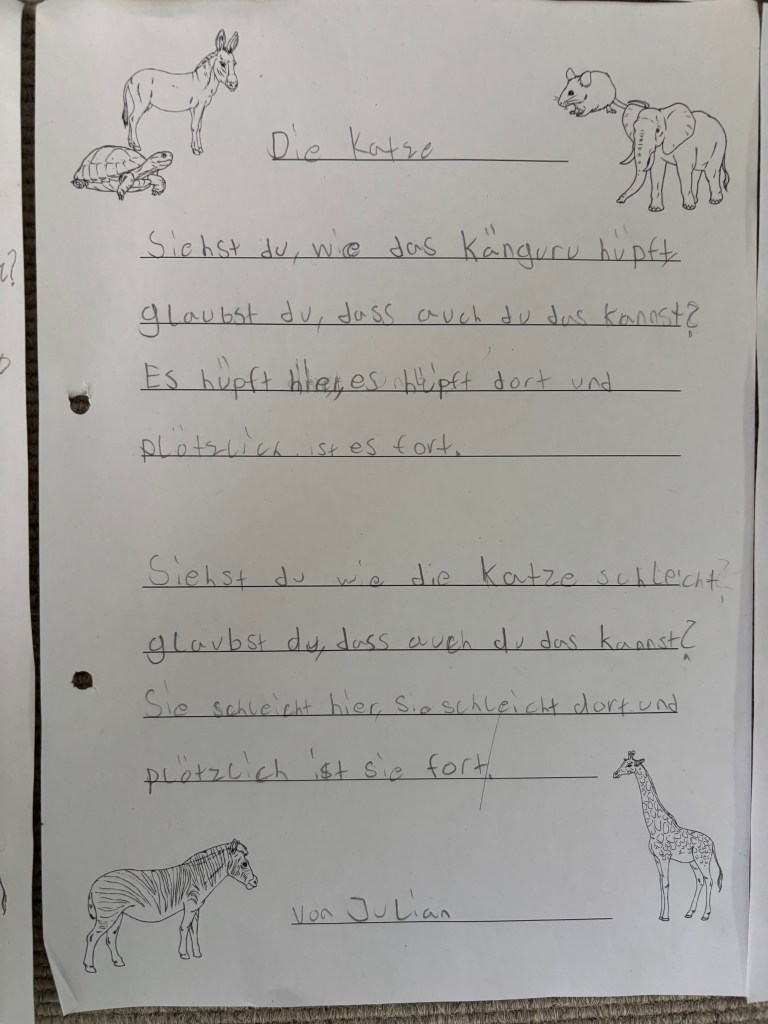 Die Katze
Siehst du, wie das Känguru hüpft,
glaubst du, dass auch du das kannst?
Es hüpft hier, es hüpft dort und
plötzlich ist es fort.
Siehst du wie die Katze schleicht?
glaubst du, dass auch du das kannst?
Sie schleicht hier, sie schleicht dort und
plötzlich ist sie fort.
von Julian